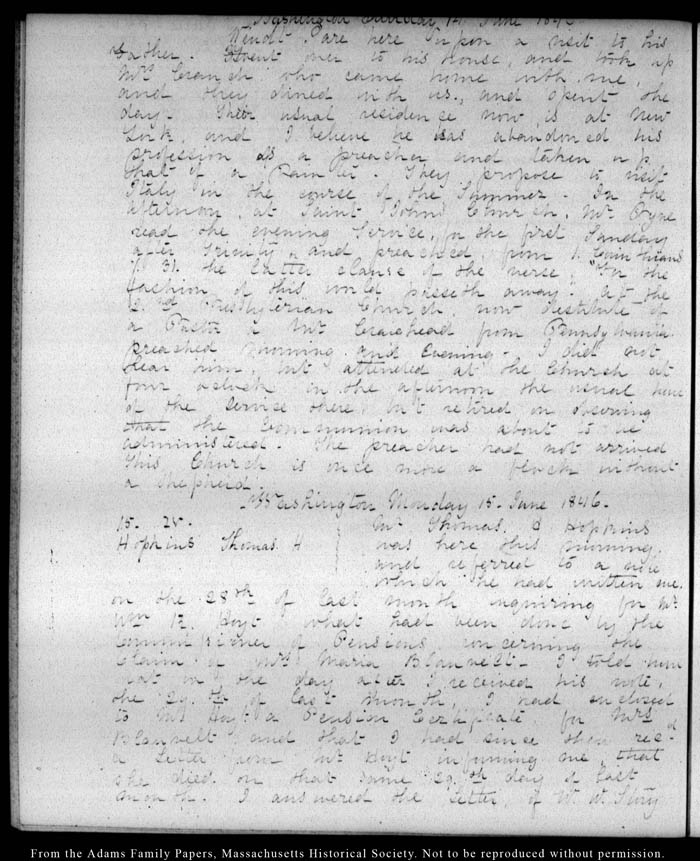 Washington Sunday 14. June 184
are here upon a visit to his
Father. I went over to his House, and took up
Mrs Cranch who came home with me,
and they dined with us, and spent the
day. Their usual residence now is at New
York, and I believe he has abandoned his
profession as a preacher and taken up
that of a Painter. They propose to visit
Italy in the course of the Summer. In the
afternoon, at Saint Johns Church, Mr Pyne
read the evening Service, for the first Sunday
after Trinity, and preached, from 1. Corinthians
7. 31. the latter clause of the verse; "For the
fashion of this world passeth away. At the
2.nd Presbyterian Church, now destitute of
a Pastor a Mr Craighead from Pennsylvania
preached Morning and Evening. I did not
hear him, but attended at the Church at
four o'clock in the afternoon the usual hour
of the service there but retired on observing
that the Communion was about to be
administered. The preacher had not arrived
This Church is once more a flock without
a shepherd.
Washington Monday 15. June 1846.
15. Mr Thomas H Hopkins
Hopkins Thomas H was here this morning,
and referred to a note
which he had written me,
on the 28th of last month inquiring for Mr
Wm Hoyt what had been done by the
Commissioner of Pensions, concerning the
Claim of Mrs Maria Blauvelt. I told him
that on the day after I received his note,
the 29.th of last Month, I had enclosed
to Mr Hoyt a Pension Certificate for Mrs
Blauvelt and that I had since then recd
a Letter from Mr Hoyt informing me, that
she died on that same 29.th day of last
month. I answered the Letter, of W. W. Story
From the Adams Family Papers, Massachusetts Historical Society. Not to be reproduced without permission.